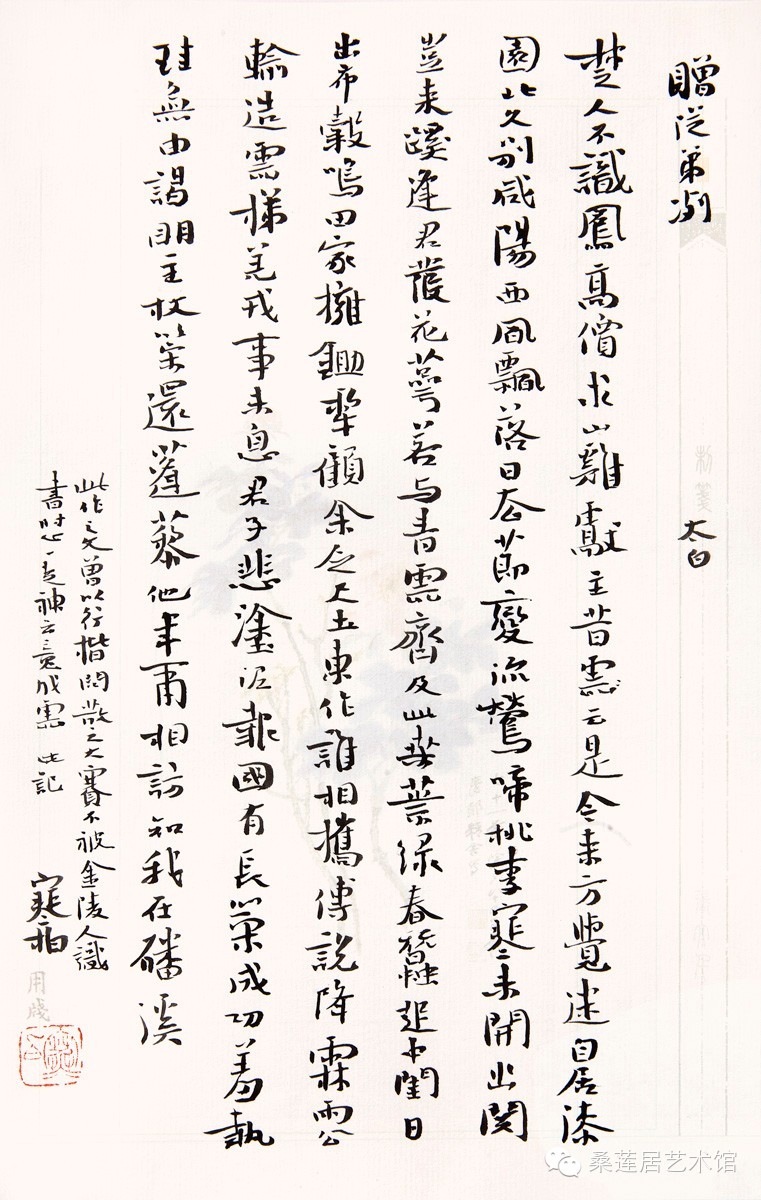 贈從弟冽
太白
楚人不識鳳高價求山雞獻主昔云是今來方覺迷自居漆
園北久別咸陽西風飄落日去節變流鶯啼桃李寒未開出関
豈来蹊逢君發花萼若与青雲齊及此桑葉绿春蠶起中閨日
出布穀鳴田家擁鋤犁顧余乏尺土東作誰相攜傅說降霖雨公
輸造雲梯羌戎事未息君子悲塗泥報國有長策成功羞執
珪無由謁明主杖策還蓬藜他年爾相訪知我在磻溪
此作之文曾以行楷閗散之大賽不被金陵人識
書时心神云意成 此記
寒柏
用牋
桑莲居艺术馆